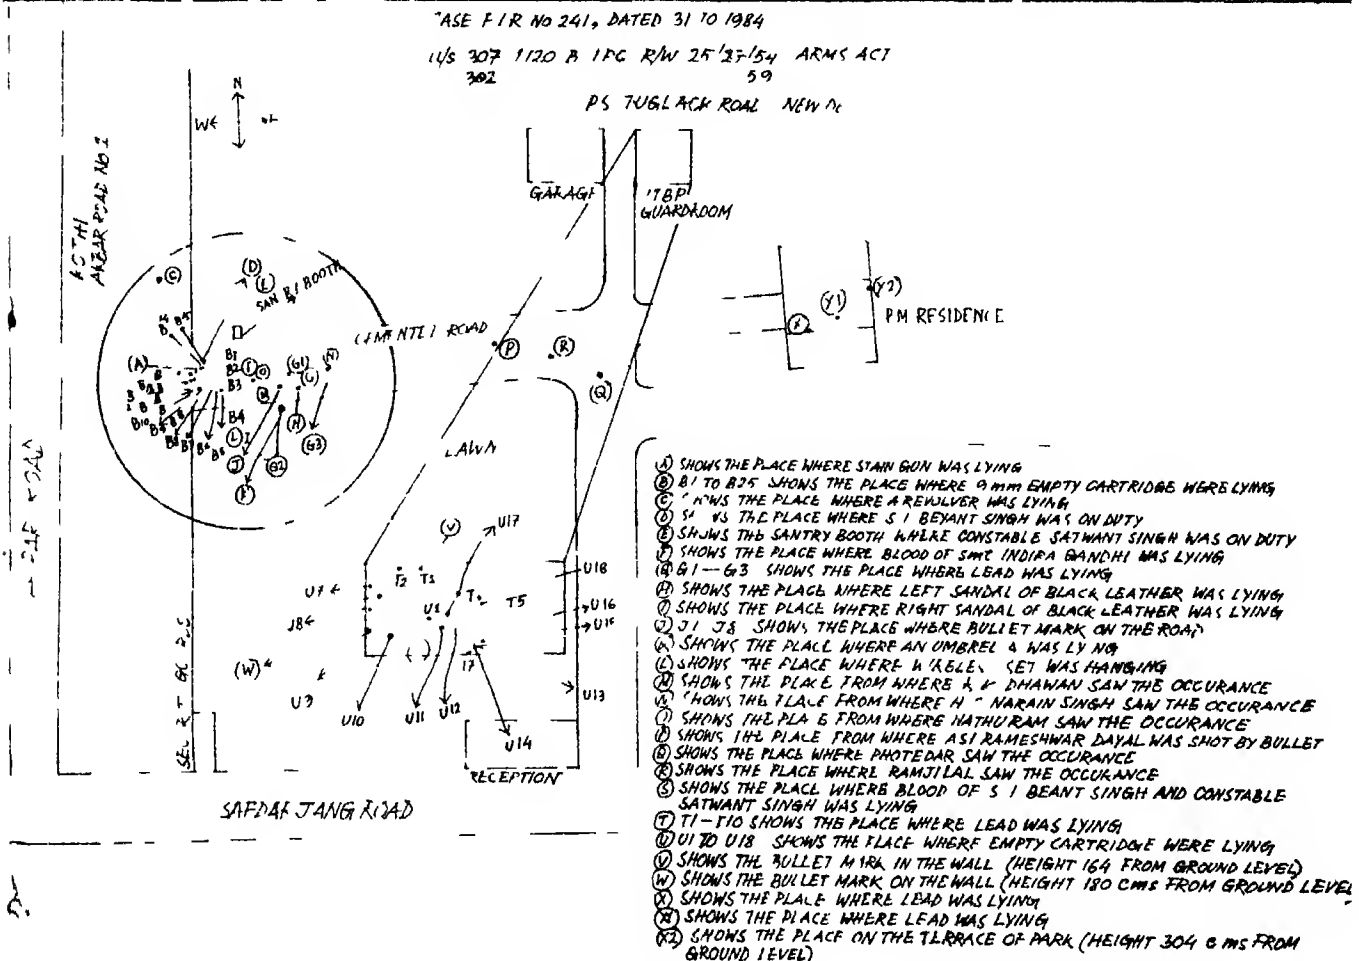 ASE FIR No 241, DATED 31 10 1984
U/S 307 /120 B IPC R/W 25/27/54 ARMS ACT
302 59
PS TUGLACK ROAD NEW
N
W
GARAGE
ITBP
GUARDROOM
AKBAR ROAD NO 1
(C)
(D)
(E)
BOOTH
CEMENTED ROAD
(A)
B1
B2
B3
B4
B10
(G1)
(N)
(H)
(L)
(J)
(G2)
(G3)
(K)
(P)
(R)
(Q)
(X)
(Y1)
(Y2)
PM RESIDENCE
LAWN
(V)
U17
U18
T2
T3
U7
T5
U16
U15
U1
J8
(W)
U3
U10
U11
U12
U13
U14
RECEPTION
SAFDARJANG ROAD
(A) SHOWS THE PLACE WHERE STAIN GUN WAS LYING
(B) B1 TO B25 SHOWS THE PLACE WHERE 9mm EMPTY CARTRIDGE WERE LYING
(C) SHOWS THE PLACE WHERE A REVOLVER WAS LYING
(D) SHOWS THE PLACE WHERE S I BEYANT SINGH WAS ON DUTY
(E) SHOWS THE SANTRY BOOTH WHERE CONSTABLE SATWANT SINGH WAS ON DUTY
(F) SHOWS THE PLACE WHERE BLOOD OF Smt INDIRA GANDHI WAS LYING
(G) G1—G3 SHOWS THE PLACE WHERE LEAD WAS LYING
(H) SHOWS THE PLACE WHERE LEFT SANDAL OF BLACK LEATHER WAS LYING
(I) SHOWS THE PLACE WHERE RIGHT SANDAL OF BLACK LEATHER WAS LYING
(J) J1 J8 SHOWS THE PLACE WHERE BULLET MARK ON THE ROAD
(K) SHOWS THE PLACE WHERE AN UMBRELLA WAS LYING
(L) SHOWS THE PLACE WHERE WIRELESS SET WAS HANGING
(M) SHOWS THE PLACE FROM WHERE R K DHAWAN SAW THE OCCURANCE
(N) SHOWS THE PLACE FROM WHERE H C NARAIN SINGH SAW THE OCCURANCE
(O) SHOWS THE PLACE FROM WHERE NATHURAM SAW THE OCCURANCE
(P) SHOWS THE PLACE FROM WHERE ASI RAMESHWAR DAYAL WAS SHOT BY BULLET
(Q) SHOWS THE PLACE WHERE PHOTEDAR SAW THE OCCURANCE
(R) SHOWS THE PLACE WHERE RAMJILAL SAW THE OCCURANCE
(S) SHOWS THE PLACE WHERE BLOOD OF S I BEANT SINGH AND CONSTABLE
SATWANT SINGH WAS LYING
(T) T1-T10 SHOWS THE PLACE WHERE LEAD WAS LYING
(U) U1 TO U18 SHOWS THE PLACE WHERE EMPTY CARTRIDGE WERE LYING
(V) SHOWS THE BULLET MARK IN THE WALL (HEIGHT 164 FROM GROUND LEVEL)
(W) SHOWS THE BULLET MARK ON THE WALL (HEIGHT 180 Cms FROM GROUND LEVEL
(X) SHOWS THE PLACE WHERE LEAD WAS LYING
SHOWS THE PLACE WHERE LEAD WAS LYING
SHOWS THE PLACE ON THE TERRACE OF PARK (HEIGHT 304 cms FROM
GROUND LEVEL)